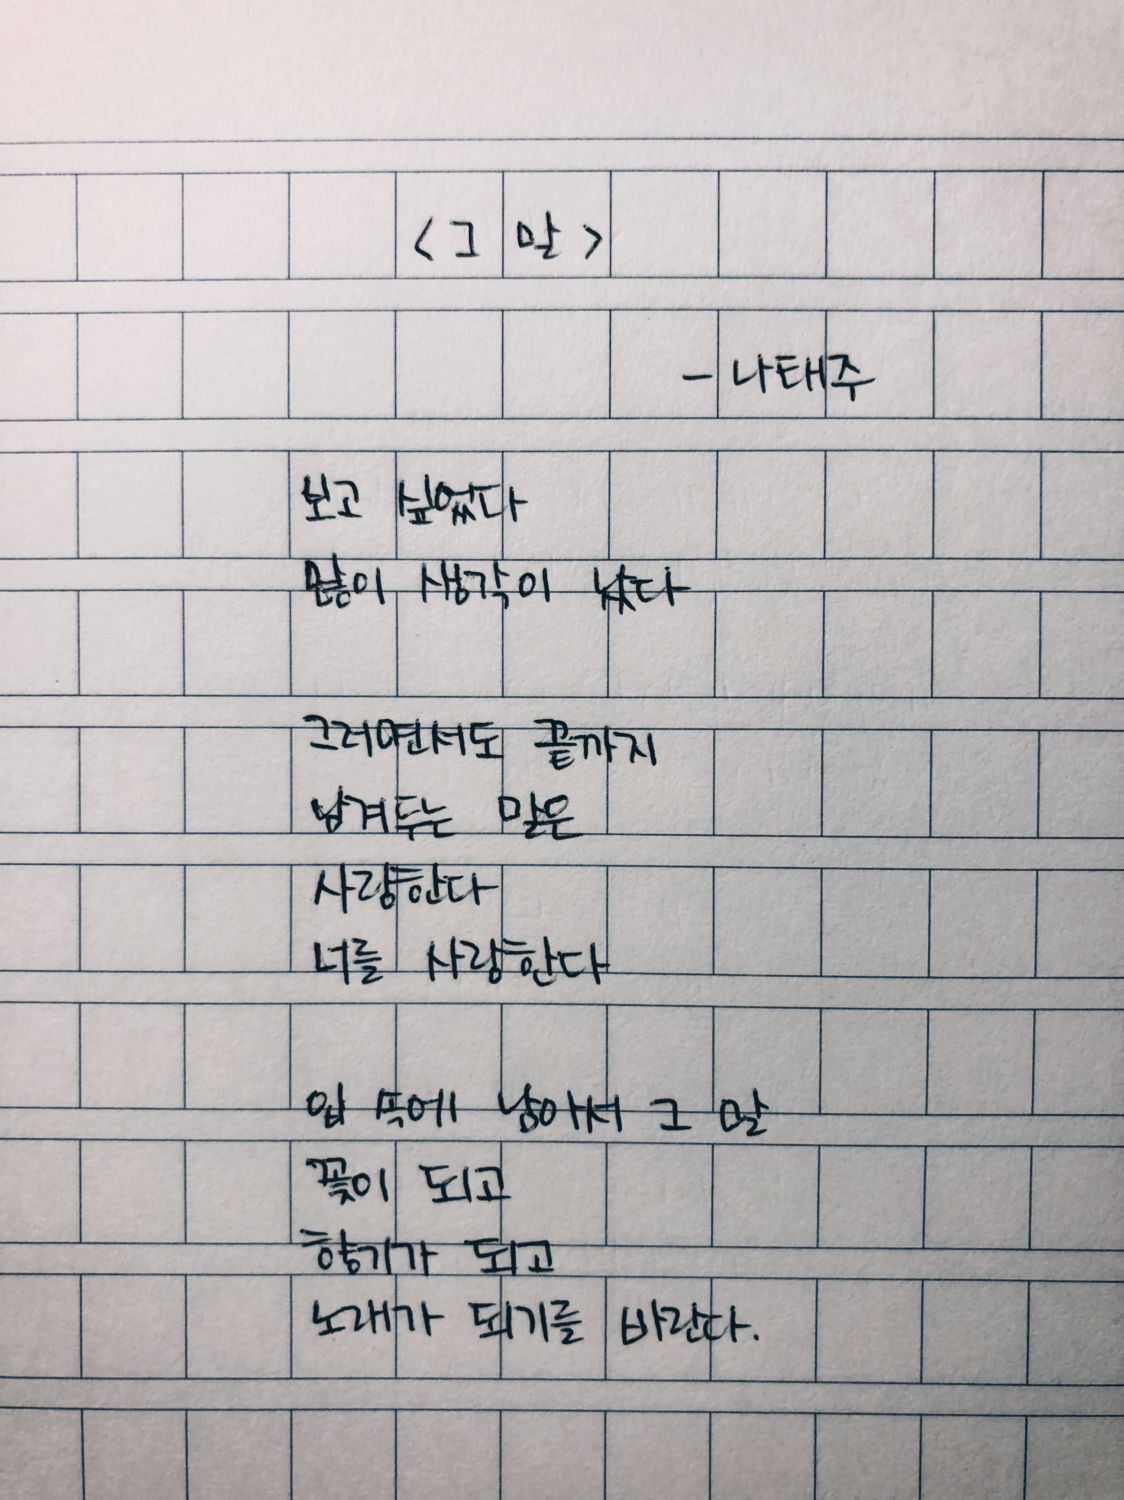 <그 말>
- 나태주
보고 싶었다
많이 생각이 났다
그러면서도 끝까지
남겨두는 말은
사랑한다
너를 사랑한다
입 속에 남아서 그 말
꽃이 되고
향기가 되고
노래가 되기를 바란다.